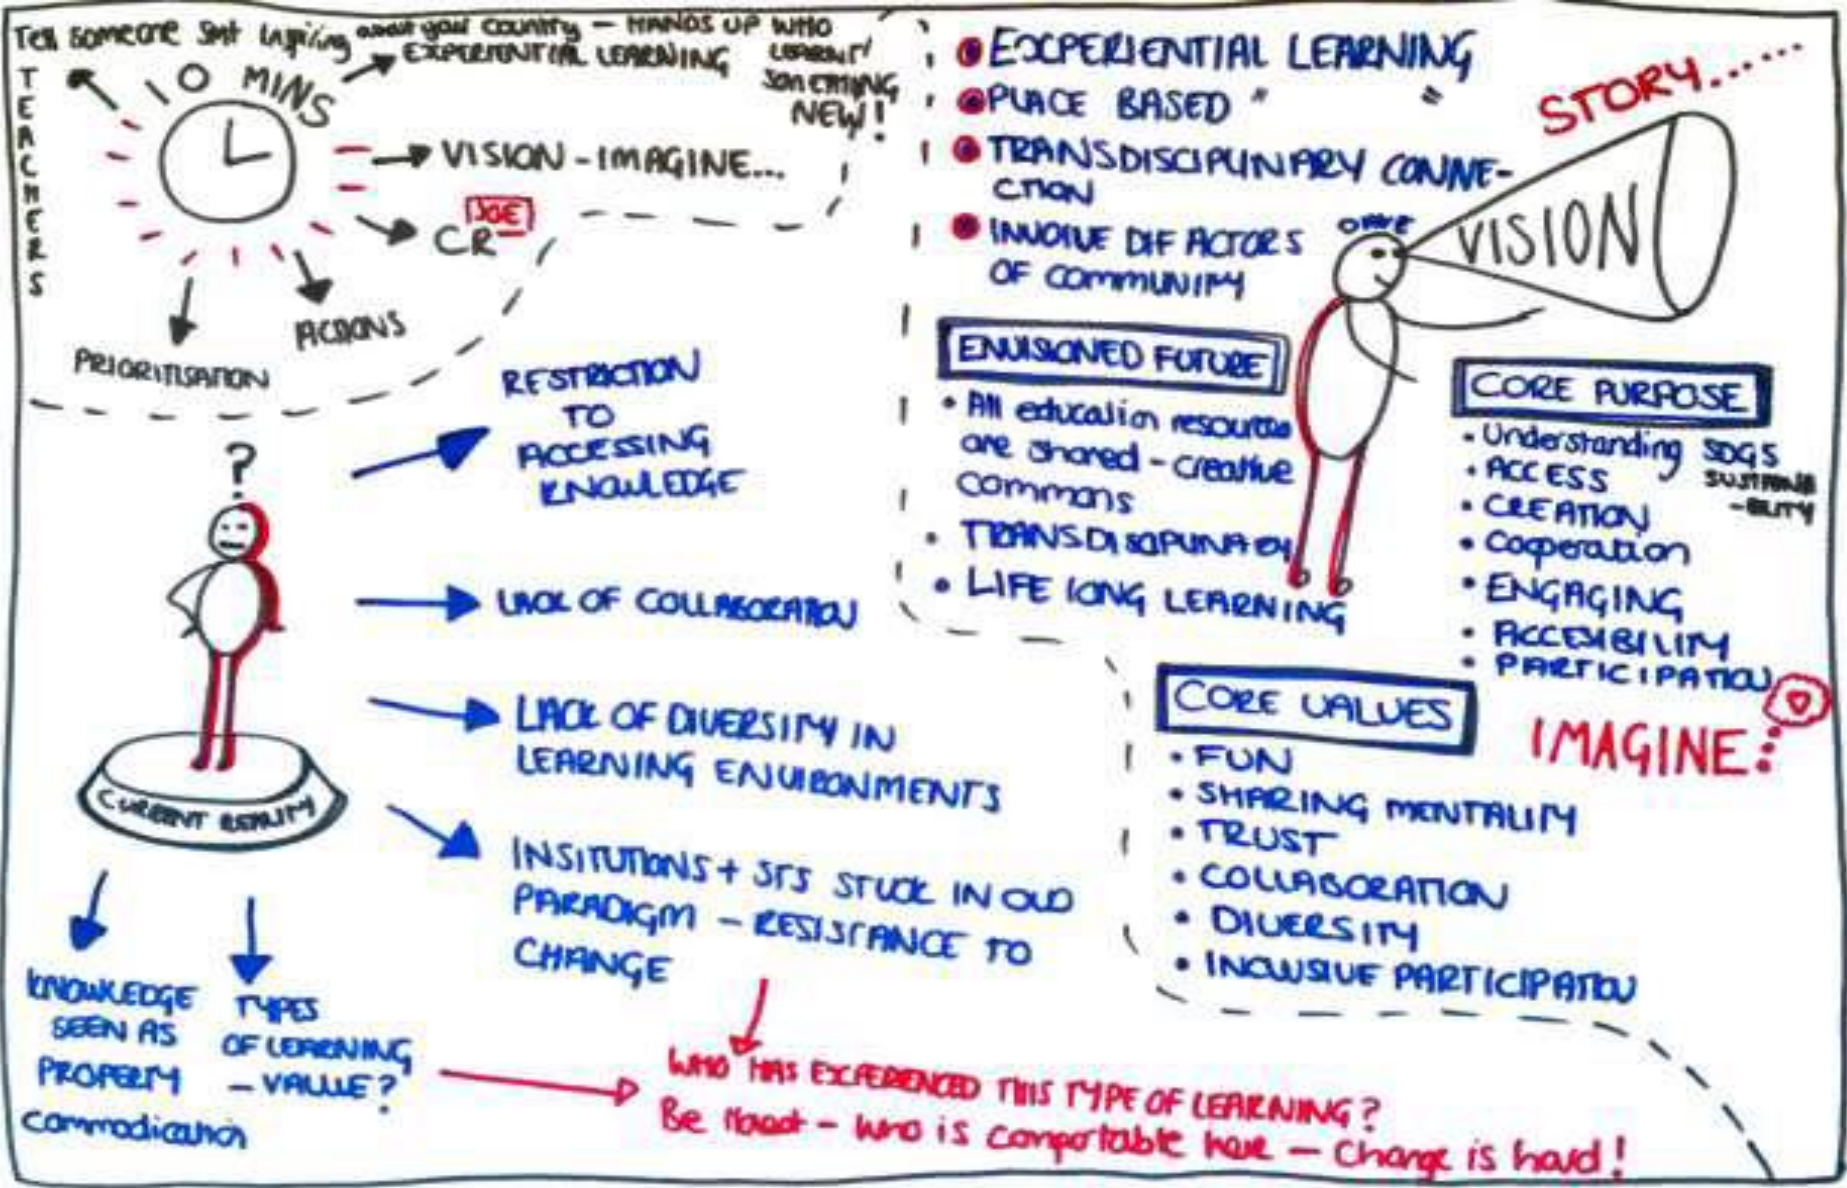 Tell someone smt inspiring about your country - HANDS UP WHO
LEARNT
SOMETHING
NEW!
EXPERIENTIAL LEARNING
TEACHERS
10 MINS
VISION - IMAGINE...
CR
ACTIONS
PRIORITISATION
?
CURRENT REALITY
RESTRICTION
TO
ACCESSING
KNOWLEDGE
LACK OF COLLABORATION
LACK OF DIVERSITY IN
LEARNING ENVIRONMENTS
INSITUTIONS + STS STUCK IN OLD
PARADIGM - RESISTANCE TO
CHANGE
KNOWLEDGE
SEEN AS
PROPERTY
commodication
TYPES
OF LEARNING
- VALUE?
WHO HAS EXPERIENCED THIS TYPE OF LEARNING?
Be - who is comfortable here - Change is hard!
• EXPERIENTIAL LEARNING
• PLACE BASED " "
• TRANSDISCIPLINARY CONNE-
CTION
• INVOLVE DIF ACTORS
OF COMMUNITY
STORY......
VISION
ENVISIONED FUTURE
• All education resources
are shared - creative
commons
• TRANSDISCIPLINARY
• LIFE LONG LEARNING
CORE PURPOSE
• Understanding SDGS
SUSTAINA
-BILITY
• ACCESS
• CREATION
• Cooperation
• ENGAGING
• ACCESIBILITY
• PARTICIPATION
IMAGINE
CORE VALUES
• FUN
• SHARING MENTALITY
• TRUST
• COLLABORATION
• DIVERSITY
• INCLUSIVE PARTICIPATION